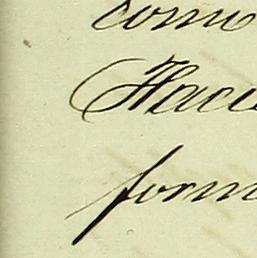 como
Hacie
form